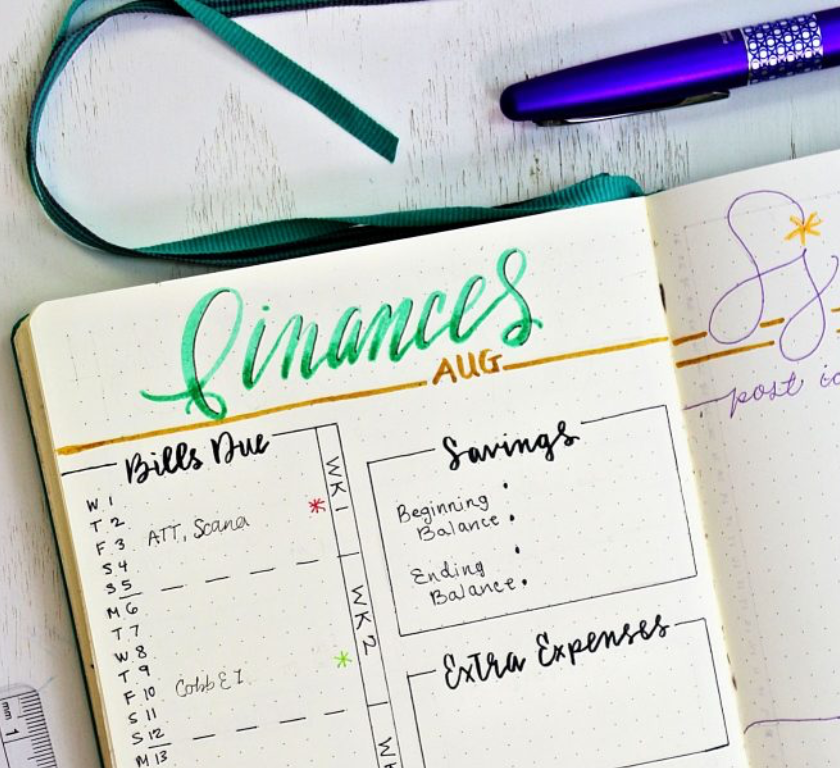 Finances
AUG
Bills Due
W 1
T 2
F 3 ATT, Scana
S 4
S 5
M 6
T 7
W 8
T 9
F 10 Cobb E
S 11
S 12
M 13
WK 1
WK 2
Savings
Beginning
Balance :
Ending
Balance :
Extra Expenses
post
mm 1